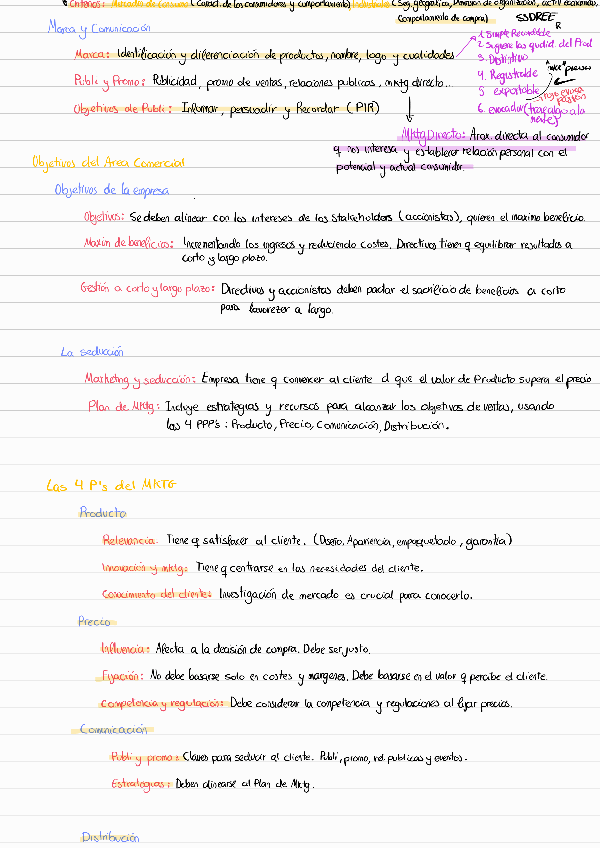 Criterios: Mercado de consumo (Caract. de los consumidores y comportamiento) Industriales (Seg. geográfica, Dimensión de organización, activ económica,
Comportamiento de compra) SSDREE
R
Marca y Comunicación
1. Simple Recordable
2. Sugiere las qualid. del Prod
3. Distintivo
4. Registrable
5 exportable
6. evocador (trasLado a la
mente)
"NIKE"
Marca: Identificación y diferenciación de productos, nombre, logo y cualidades
Publi y Promo: Publicidad, promo de ventas, relaciones publicas, mktg directo...
Objetivos de Publi: Informar, persuadir y Recordar (PIR)
Mktg Directo: Atrae directa al consumidor
q nos interesa y establecer relación personal con el
potencial y actual consumidor.
Objetivos del Area Comercial
Objetivos de la empresa
Objetivos: Se deben alinear con los intereses de los Stakeholders (accionistas), quieren el maximo beneficio.
Maxim de beneficios: Incrementando los ingresos y reduciendo costes. Directivos tienen q equilibrar resultados a
corto y largo plazo.
Gestión a corto y largo plazo: Directivos y accionistas deben pactar el sacrificio de beneficios a corto
para favorecer a largo.
La seducción
Marketing y seducción: Empresa tiene q convencer al cliente d que el valor de Producto supera el precio
Plan de Mktg: Incluye estrategias y recursos para alcanzar los objetivos de ventas, usando
las 4 PPP's: Producto, Precio, Comunicación, Distribución.
Las 4 P's del MKTG
Producto
Relevancia. Tiene q satisfacer al cliente. (Diseño, Apariencia, empaquetado, garantía)
Innovación y mktg: Tiene q centrarse en las necesidades del cliente.
Conocimiento del cliente: Investigación de mercado es crucial para conocerlo.
Precio
Influencia: Afecta a la decisión de compra. Debe ser justo.
Fijación: No debe basarse solo en costes y margenes. Debe basarse en el valor q percibe el cliente.
Competencia y regulación: Debe considerar la competencia y regulaciones al fijar precios.
Comunicación
Publi y promo: Claves para seducir al cliente. Publi, promo, rel. publicas y eventos.
Estrategias: Deben alinearse al Plan de Mktg.
Distribución